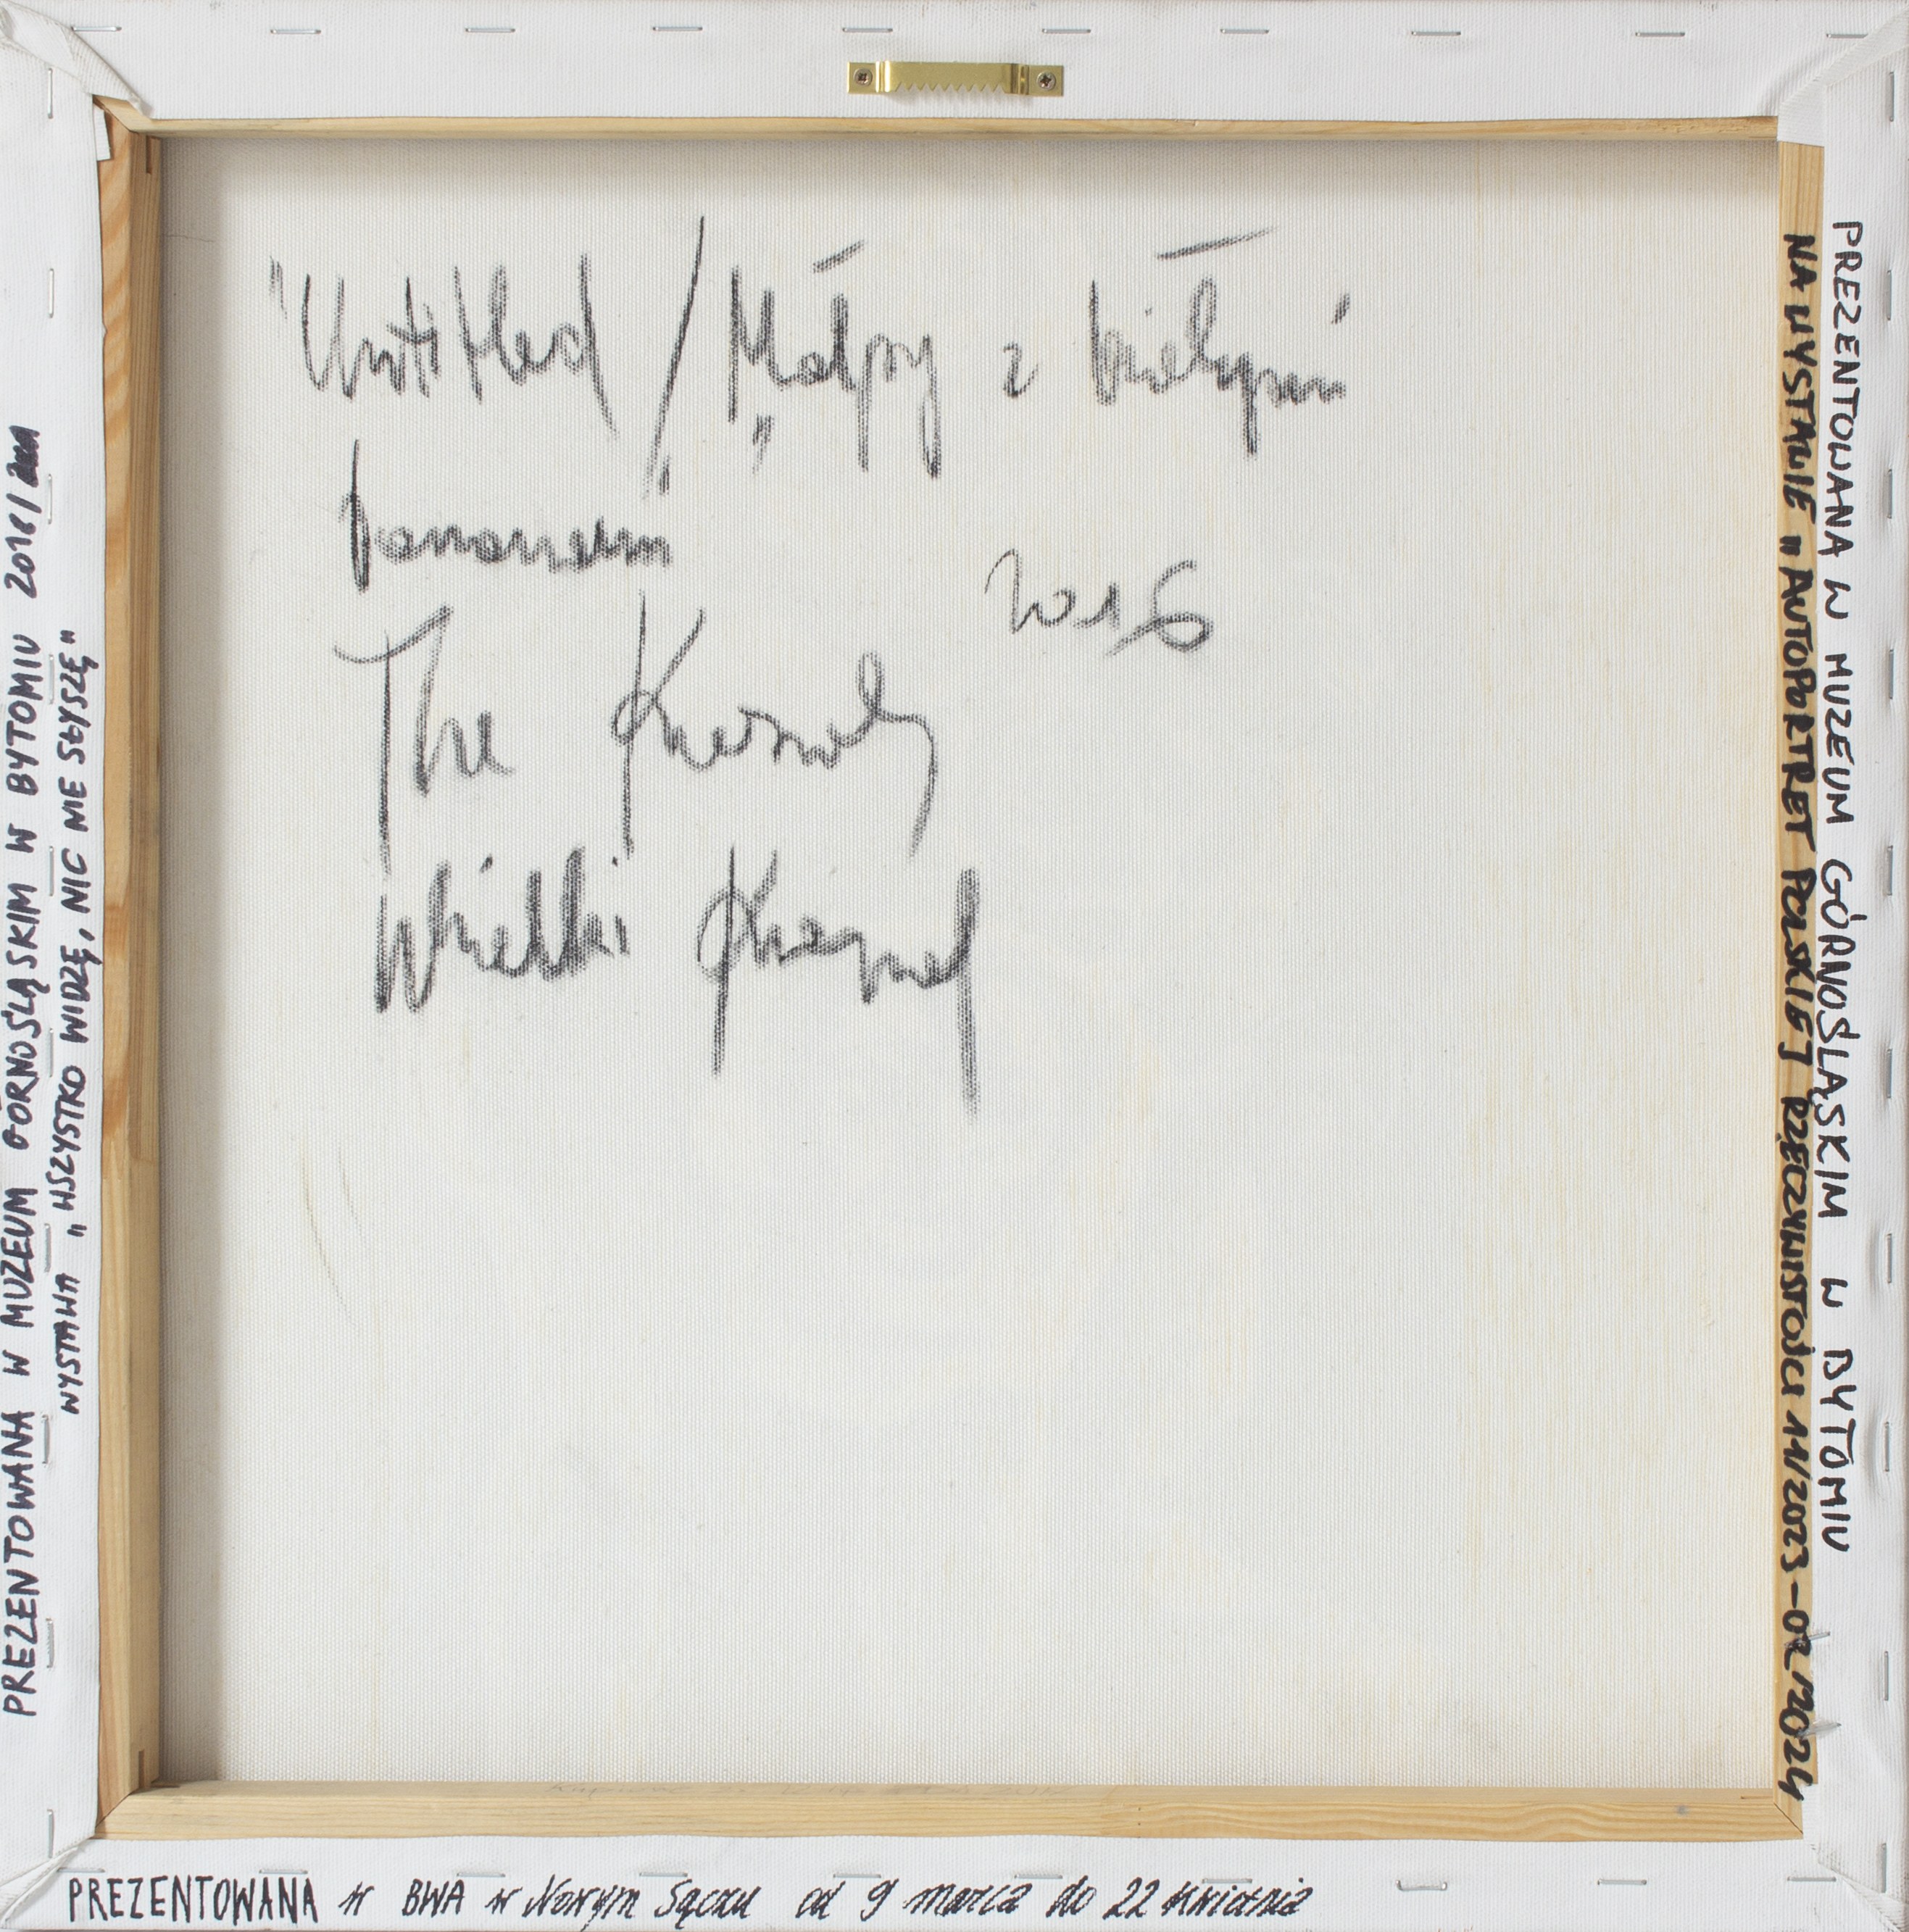 "Untitled / "Małpy z białymi
bananami
2016
The Krasnals
Whielki Krasnal
PREZENTOWANA W MUZEUM GÓRNOŚLĄSKIM W BYTOMIU 2018/
WYSTAWA "WSZYSTKO WIDZĘ, NIC NIE SŁYSZĘ"
PREZENTOWANA W MUZEUM GÓRNOŚLĄSKIM W BYTOMIU
NA WYSTAWIE "AUTOPORTRET POLSKIEJ RZECZYWISTOŚCI 11/2023-02/2024
PREZENTOWANA w BWA w Nowym Sączu od 9 marca do 22 kwietnia